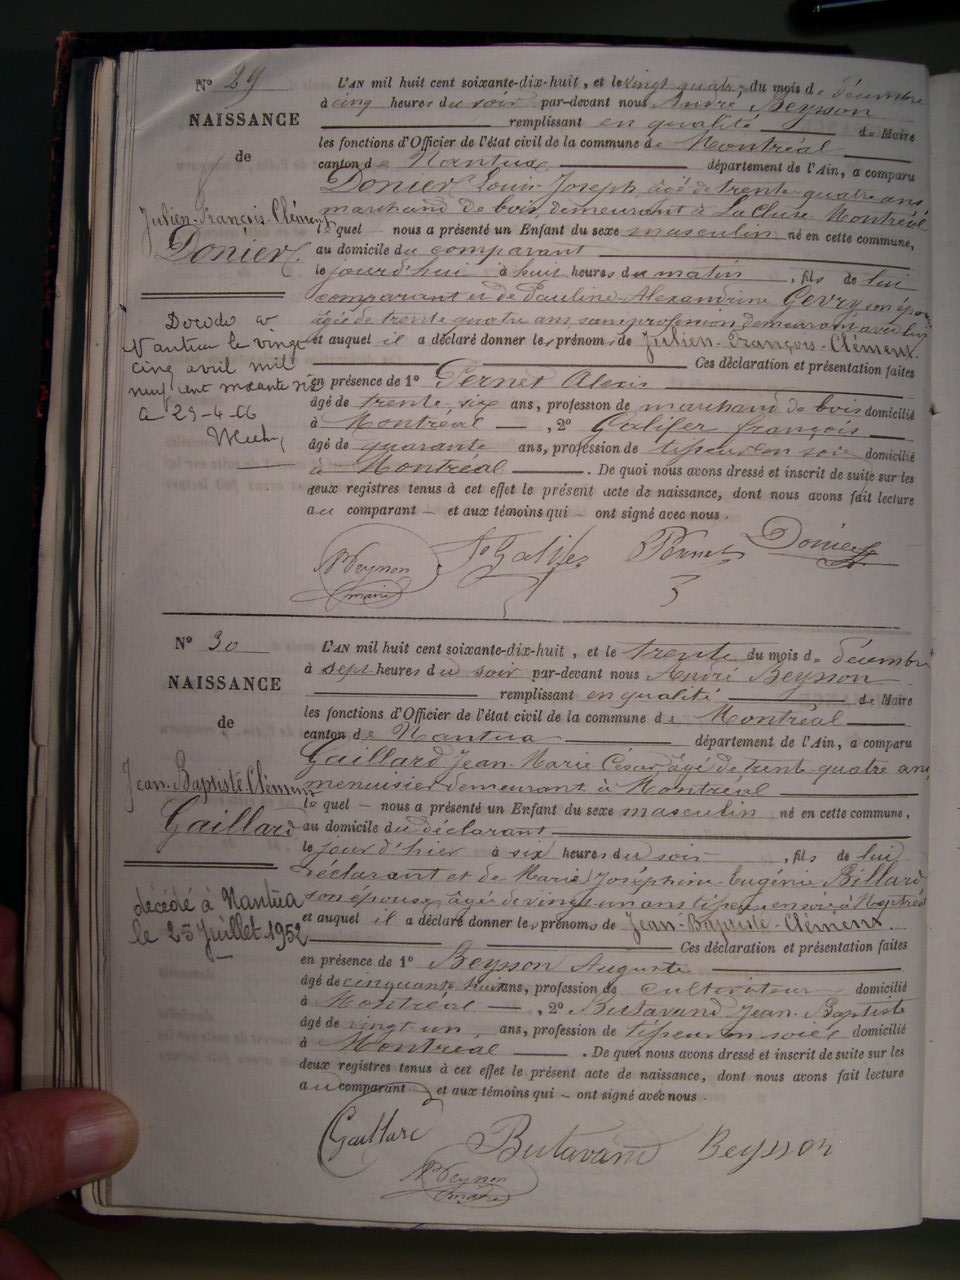 N° 29
NAISSANCE
de
Julien-François-Clément
Donier
Décédé à
Nantua le vingt
cinq avril mil
neuf cent soixante six
a 29-4-66
L'AN mil huit cent soixante-dix-huit, et le vingt quatre, du mois de décembre
à cinq heures du soir par-devant nous André Beysson
remplissant en qualité de Maire
les fonctions d'Officier de l'état civil de la commune de Montréal
canton de Nantua département de l'Ain, a comparu
Donier Louis Joseph, âgé de trente-quatre ans,
marchand de bois, demeurant à La Cluse Montréal
lequel nous a présenté un Enfant du sexe masculin né en cette commune,
au domicile du comparant
le jourd'hui à huit heures du matin, fils de lui
comparant et de Pauline Alexandrine Gevry, son épouse
âgée de trente quatre ans, sans profession demeurant avec lui
et auquel il a déclaré donner les prénoms de Julien-François-Clément.
Ces déclaration et présentation faites
en présence de 1° Pernet Alexis
âgé de trente six ans, profession de marchand de bois domicilié
à Montréal, 2° Galifer françois
âgé de quarante ans, profession de tisseur en soie domicilié
à Montréal. De quoi nous avons dressé et inscrit de suite sur les
deux registres tenus à cet effet le présent acte de naissance, dont nous avons fait lecture
au comparant et aux témoins qui ont signé avec nous.
A Beysson
maire
fs Galifer
Pernet
Donier
N° 30
NAISSANCE
de
Jean-Baptiste-Clément
Gaillard
décédé à Nantua
le 25 Juillet 1952
L'AN mil huit cent soixante-dix-huit, et le trente du mois de décembre
à sept heures du soir par-devant nous André Beysson
remplissant en qualité de Maire
les fonctions d'Officier de l'état civil de la commune de Montréal
canton de Nantua département de l'Ain, a comparu
Gaillard Jean-Marie César, âgé de trente quatre ans,
menuisier demeurant à Montréal
lequel nous a présenté un Enfant du sexe masculin né en cette commune,
au domicile du déclarant
le jour d'hier à six heures du soir, fils de lui
déclarant et de Marie Joséphine Eugénie Billard
son épouse, âgée de vingt-un ans tisseuse en soie à Montréal
et auquel il a déclaré donner les prénoms de Jean-Baptiste-Clément.
Ces déclaration et présentation faites
en présence de 1° Beysson Auguste
âgé de cinquante huit ans, profession de cultivateur domicilié
à Montréal, 2° Butavand Jean-Baptiste
âgé de vingt un, ans, profession de tisseur en soie domicilié
à Montréal. De quoi nous avons dressé et inscrit de suite sur les
deux registres tenus à cet effet le présent acte de naissance, dont nous avons fait lecture
au comparant et aux témoins qui ont signé avec nous.
Gaillard
Butavand
Beysson
A Beysson
maire